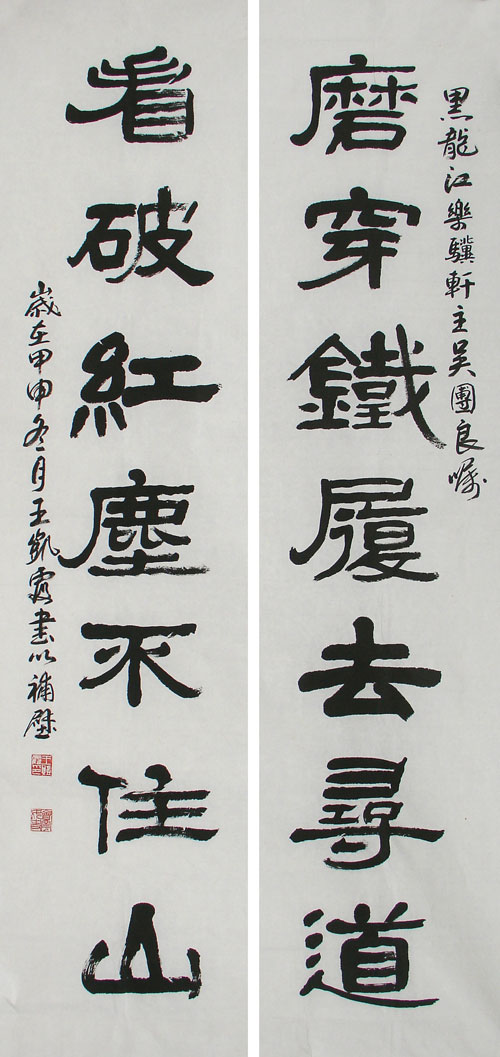 黑龍江樂驥軒主吴團良嘱
磨穿鐵履去尋道
看破紅塵不住山
歲在甲申冬月王凱霞書以補壁